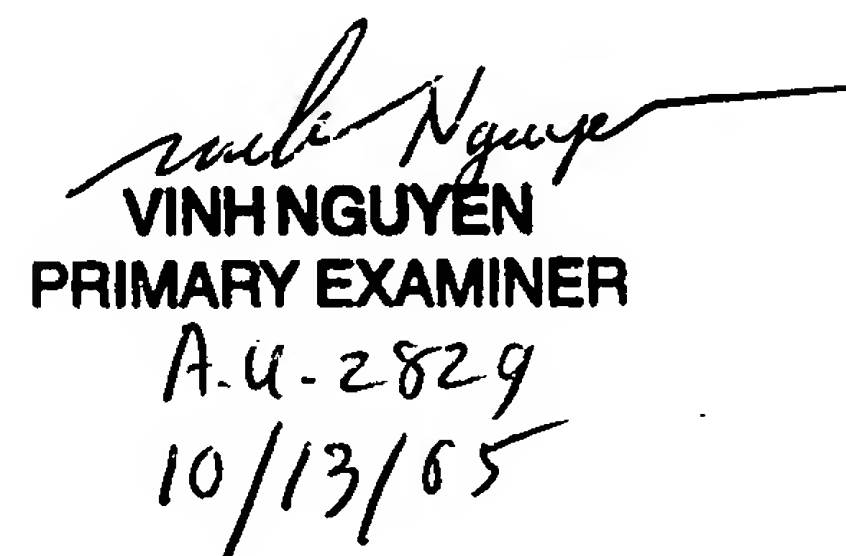 Vinh Nguyen
VINH NGUYEN
PRIMARY EXAMINER
A.U. - 2829
10/13/05